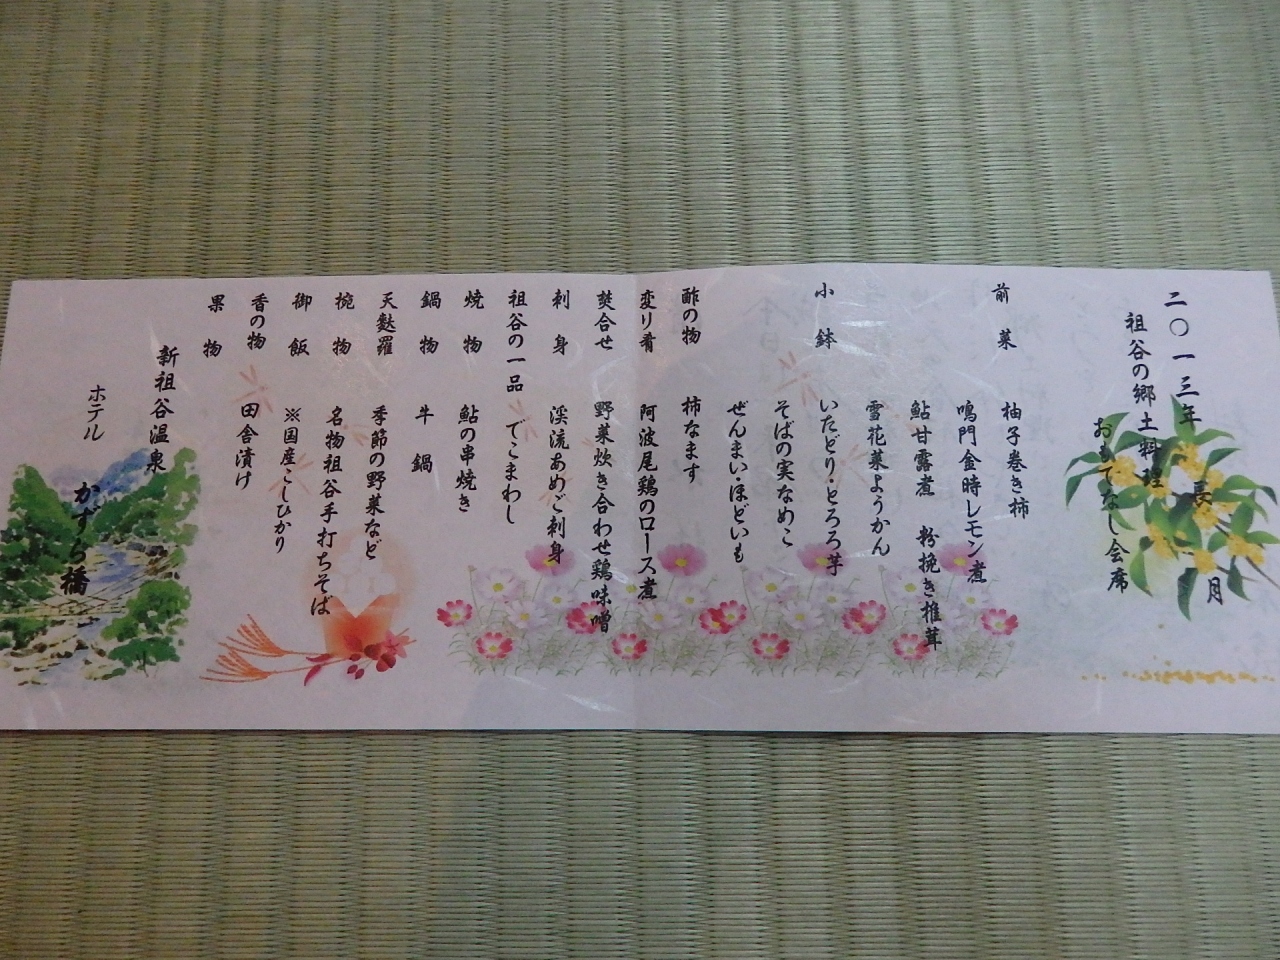 二〇一三年 長月
祖谷の郷土料理
おもてなし会席
前菜 柚子巻き柿
鳴門金時レモン煮
鮎甘露煮 粉挽き椎茸
雪花菜ようかん
小鉢 いたどり・とろろ芋
そばの実なめこ
ぜんまい・ほどいも
酢の物 柿なます
変り肴 阿波尾鶏のロース煮
焚合せ 野菜炊き合わせ鶏味噌
刺身 渓流あめご刺身
祖谷の一品 でこまわし
焼物 鮎の串焼き
鍋物 牛鍋
天麩羅 季節の野菜など
椀物 名物祖谷手打ちそば
御飯 ※国産こしひかり
香の物 田舎漬け
果物
新祖谷温泉
ホテル かずら橋